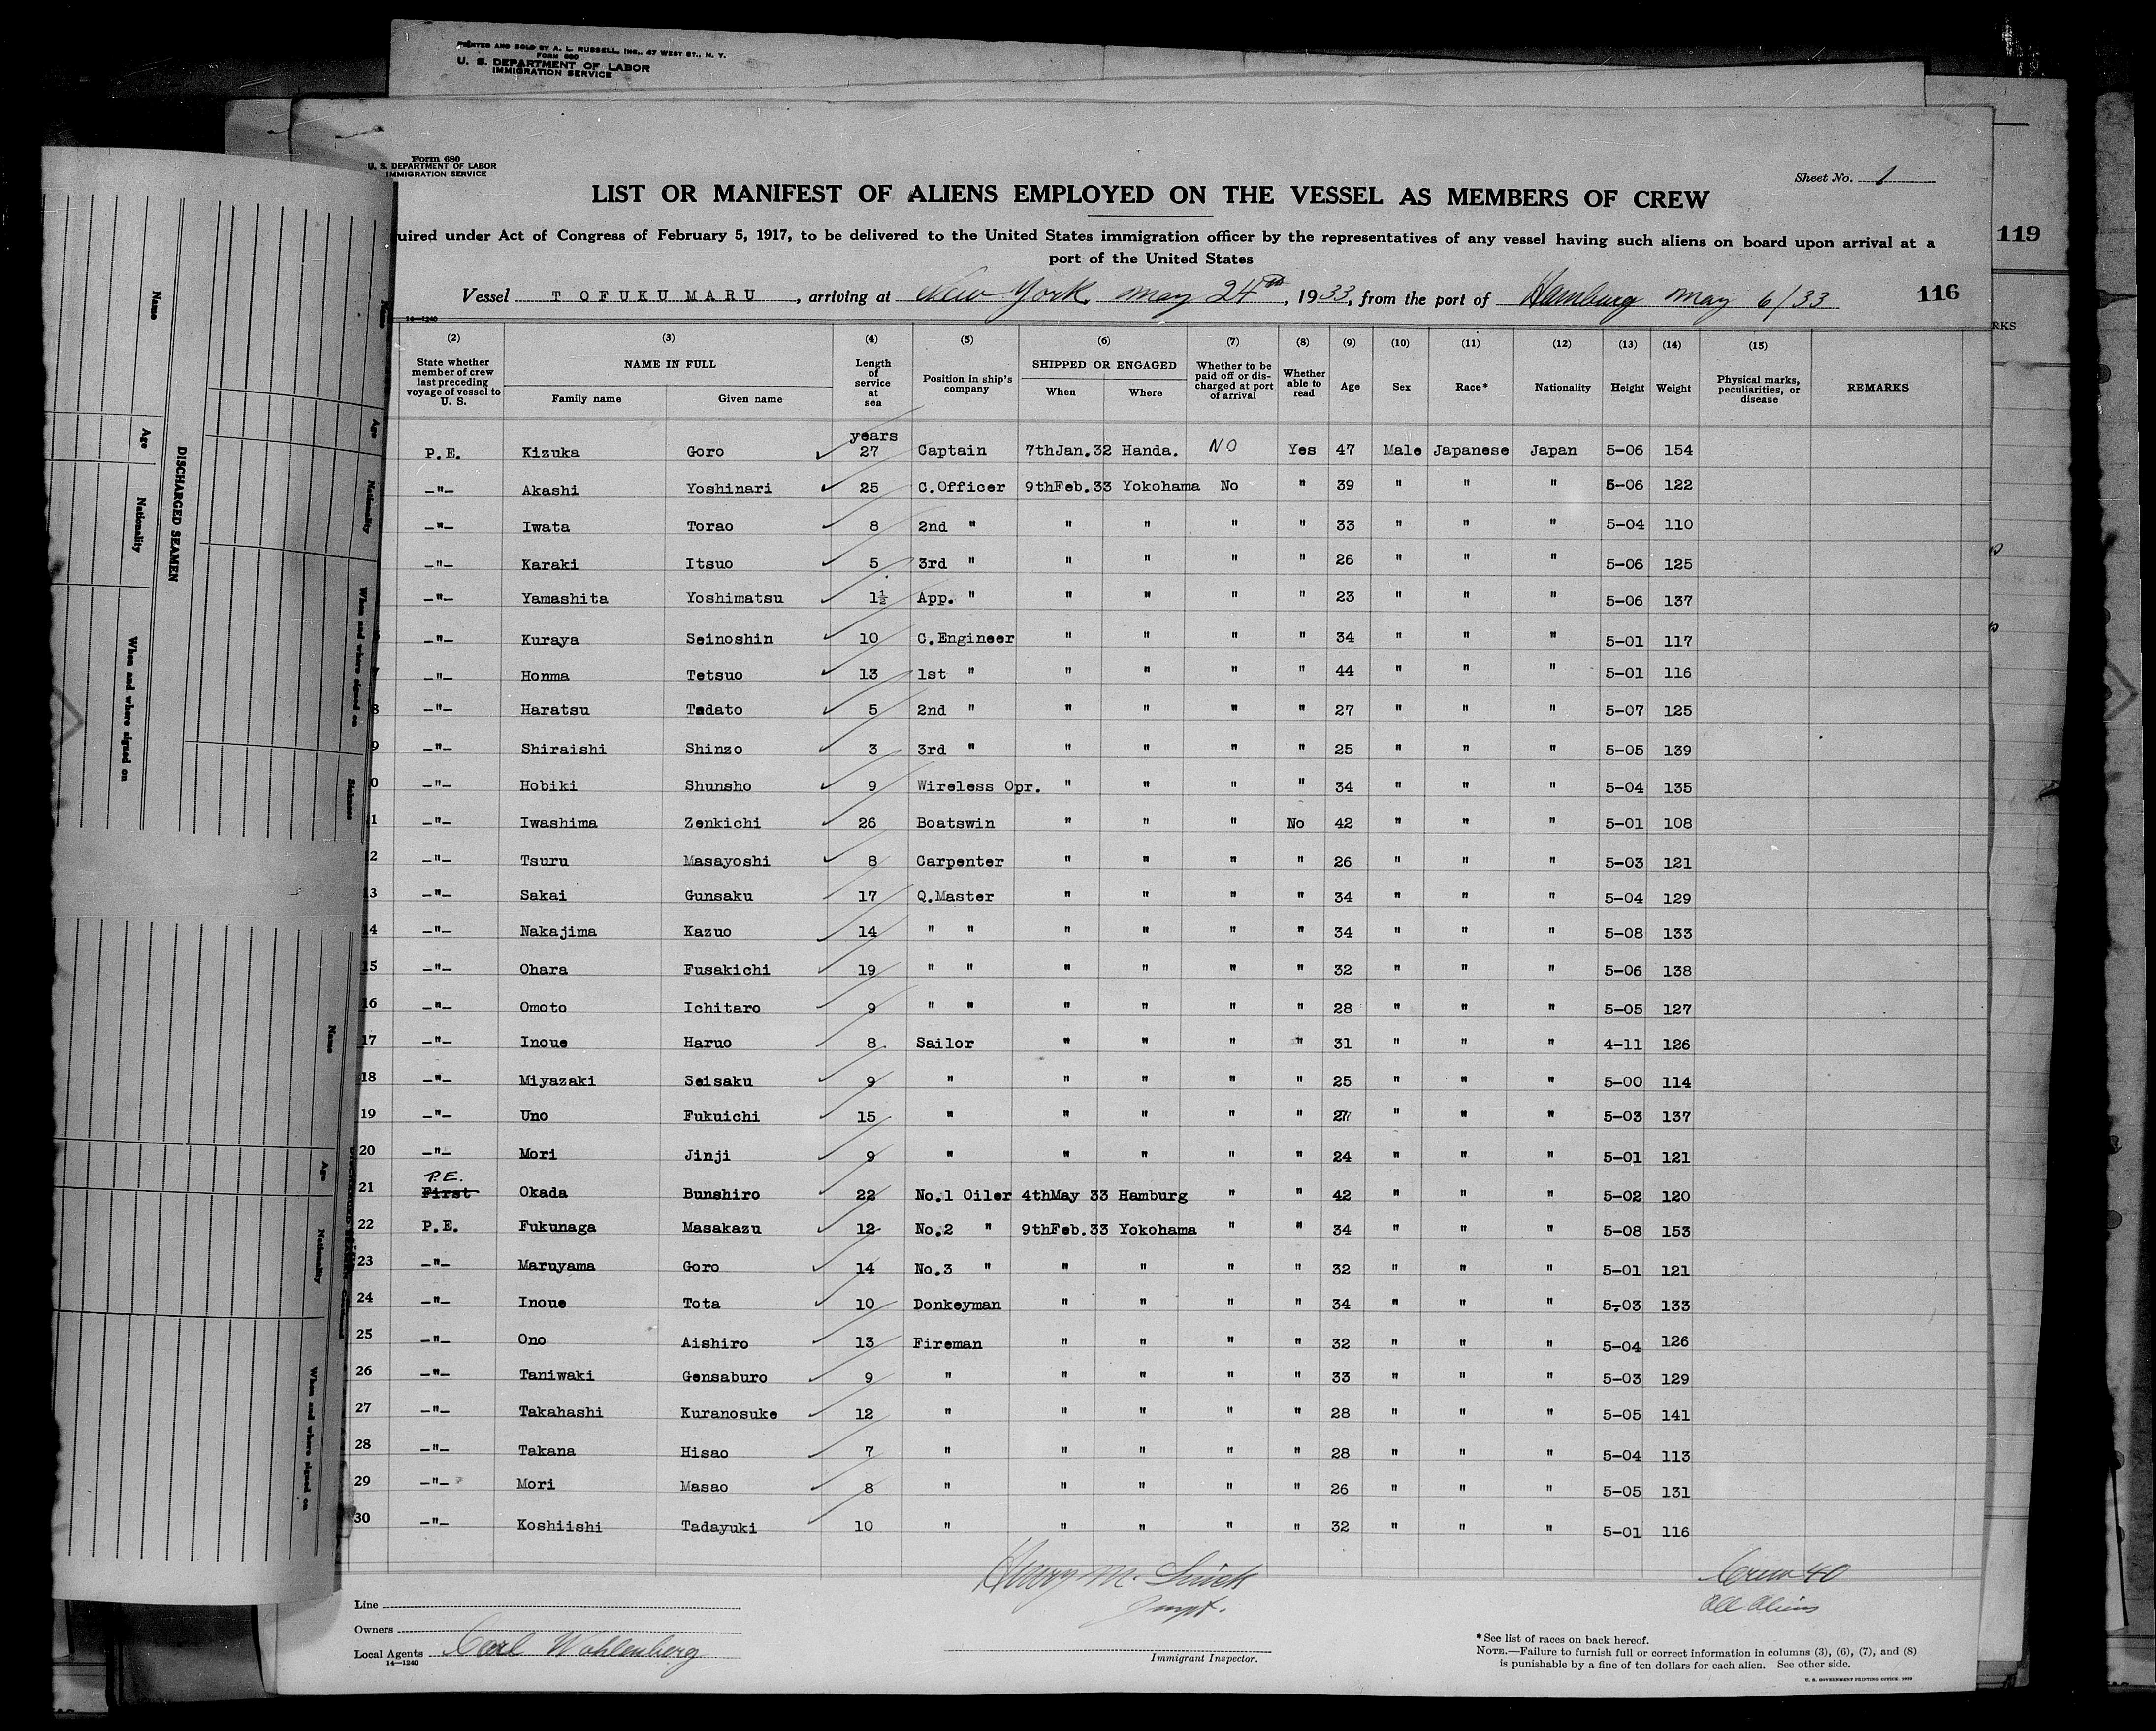 PRINTED AND SOLD BY A. L. RUSSELL, INC., 47 WEST ST., N. Y.
FORM 680
U. S. DEPARTMENT OF LABOR
IMMIGRATION SERVICE
Form 680
U. S. DEPARTMENT OF LABOR
IMMIGRATION SERVICE
Sheet No. 1
LIST OR MANIFEST OF ALIENS EMPLOYED ON THE VESSEL AS MEMBERS OF CREW
119
uired under Act of Congress of February 5, 1917, to be delivered to the United States immigration officer by the representatives of any vessel having such aliens on board upon arrival at a
port of the United States
Vessel TOFUKU MARU, arriving at New York, May 24th, 1933, from the port of Hamburg May 6/33 116
14—1240
RKS
(2) (3) (4) (5) (6) (7) (8) (9) (10) (11) (12) (13) (14) (15)
State whether member of crew last preceding voyage of vessel to U. S. NAME IN FULL Family name Given name Length of service at sea Position in ship's company SHIPPED OR ENGAGED When Where Whether to be paid off or discharged at port of arrival Whether able to read Age Sex Race* Nationality Height Weight Physical marks, peculiarities, or disease REMARKS
years
P.E. Kizuka Goro 27 Captain 7thJan.32 Handa. NO Yes 47 Male Japanese Japan 5-06 154
–"– Akashi Yoshinari 25 C.Officer 9thFeb.33 Yokohama No " 39 " " " 5-06 122
–"– Iwata Torao 8 2nd " " " " " 33 " " " 5-04 110
–"– Karaki Itsuo 5 3rd " " " " " 26 " " " 5-06 125
–"– Yamashita Yoshimatsu 1½ App. " " " " " 23 " " " 5-06 137
–"– Kuraya Seinoshin 10 C.Engineer " " " " 34 " " " 5-01 117
7 –"– Honma Tetsuo 13 1st " " " " " 44 " " " 5-01 116
8 –"– Haratsu Tadato 5 2nd " " " " " 27 " " " 5-07 125
9 –"– Shiraishi Shinzo 3 3rd " " " " " 25 " " " 5-05 139
0 –"– Hobiki Shunsho 9 Wireless Opr. " " " " 34 " " " 5-04 135
1 –"– Iwashima Zenkichi 26 Boatswin " " " No 42 " " " 5-01 108
2 –"– Tsuru Masayoshi 8 Carpenter " " " " 26 " " " 5-03 121
3 –"– Sakai Gunsaku 17 Q.Master " " " " 34 " " " 5-04 129
14 –"– Nakajima Kazuo 14 " " " " " " 34 " " " 5-08 133
15 –"– Ohara Fusakichi 19 " " " " " " 32 " " " 5-06 138
16 –"– Omoto Ichitaro 9 " " " " " " 28 " " " 5-05 127
17 –"– Inoue Haruo 8 Sailor " " " " 31 " " " 4-11 126
18 –"– Miyazaki Seisaku 9 " " " " " 25 " " " 5-00 114
19 –"– Uno Fukuichi 15 " " " " " 27 " " " 5-03 137
20 –"– Mori Jinji 9 " " " " " 24 " " " 5-01 121
P.E.
21 First Okada Bunshiro 22 No.1 Oiler 4thMay 33 Hamburg " " 42 " " " 5-02 120
22 P.E. Fukunaga Masakazu 12 No.2 " 9thFeb.33 Yokohama " " 34 " " " 5-08 153
23 –"– Maruyama Goro 14 No.3 " " " " " 32 " " " 5-01 121
24 –"– Inoue Tota 10 Donkeyman " " " " 34 " " " 5-03 133
25 –"– Ono Aishiro 13 Fireman " " " " 32 " " " 5-04 126
26 –"– Taniwaki Gensaburo 9 " " " " " 33 " " " 5-03 129
27 –"– Takahashi Kuranosuke 12 " " " " " 28 " " " 5-05 141
28 –"– Takana Hisao 7 " " " " " 28 " " " 5-04 113
29 –"– Mori Masao 8 " " " " " 26 " " " 5-05 131
30 –"– Koshiishi Tadayuki 10 " " " " " 32 " " " 5-01 116
Crew 40
All Aliens
Line
Owners
Local Agents Carl Wohlenberg
14—1240
Immigrant Inspector.
*See list of races on back hereof.
NOTE.—Failure to furnish full or correct information in columns (3), (6), (7), and (8)
is punishable by a fine of ten dollars for each alien. See other side.
U. S. GOVERNMENT PRINTING OFFICE: 1929
Name
Age
Nationality
When and where signed on
DISCHARGED SEAMEN
Name
Age
Nationality
When and where signed on
Sickness
Name
Age
Nationality
When and where signed on